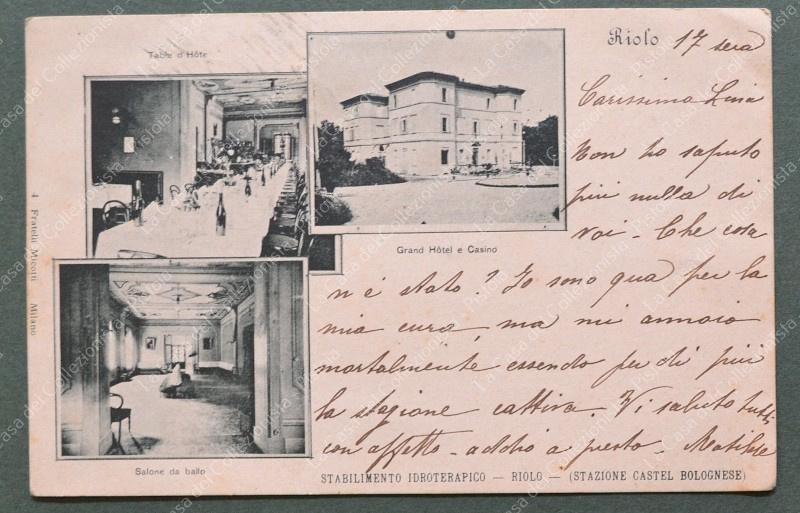 Riolo 17 sera
Carissima Lina
Non ho saputo
più nulla di
voi. Che cosa
n'è stato? Io sono qua per la
mia cura, ma mi annoio
mortalmente essendo per di più
la stagione cattiva. Vi saluto tutti
con affetto - addio a presto. Matilde
Table d'Hôte
Grand Hôtel e Casino
Salone da ballo
4 Fratelli Miccoli Milano
STABILIMENTO IDROTERAPICO — RIOLO — (STAZIONE CASTEL BOLOGNESE)
La Casa del Collezionista Pistoia